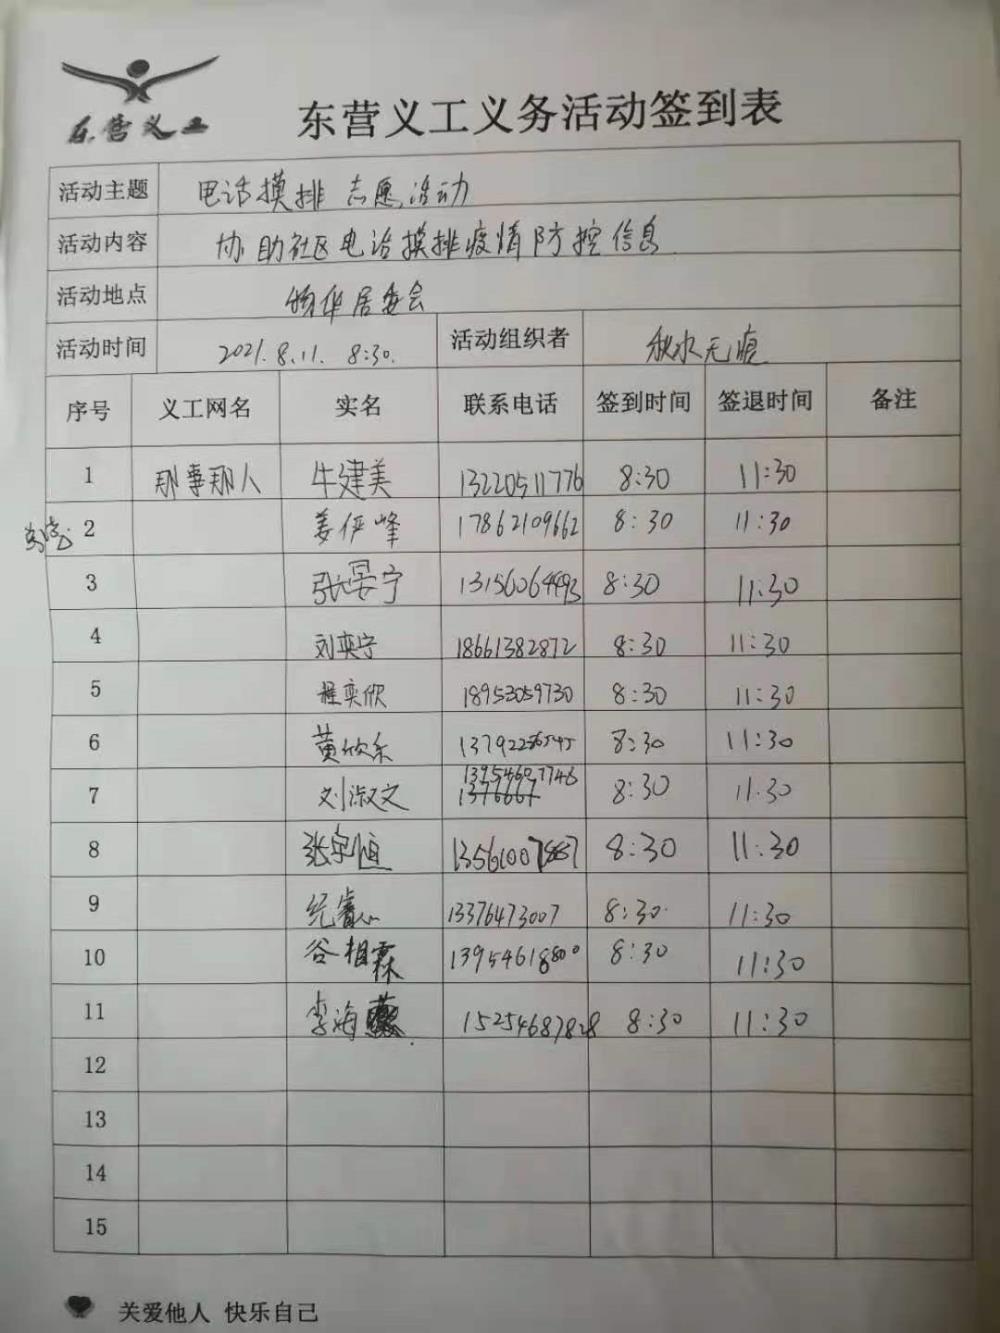 东营义工
东营义工义务活动签到表
活动主题 电话摸排志愿活动
活动内容 协助社区电话摸排疫情防控信息
活动地点 物华居委会
活动时间 2021.8.11. 8:30. 活动组织者 秋水无痕
序号 义工网名 实名 联系电话 签到时间 签退时间 备注
1 那事那人 牛建美 13220511776 8:30 11:30
2 姜伊峰 17862109662 8:30 11:30
3 张晏宁 13156064493 8:30 11:30
4 刘奕宁 18661382872 8:30 11:30
5 程奕欣 18953059730 8:30 11:30
6 黄欣乐 8:30 11:30
7 刘淑文 8:30 11.30
8 张宗恒 8:30 11:30
9 13376473007 8:30 11:30
10 谷相霖 13954618800 8:30 11:30
11 李海 15254687828 8:30 11:30
12
13
14
15
关爱他人 快乐自己